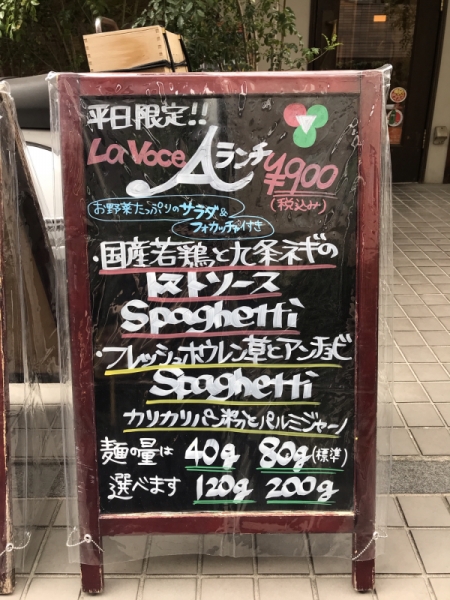 平日限定!!
La Voce Aランチ ¥900
(税込み)
お野菜たっぷりのサラダ&
フォカッチャ付き
・国産若鶏と九条ネギの
トマトソース
Spaghetti
・フレッシュホウレン草とアンチョビ
Spaghetti
カリカリパン粉とパルミジャーノ
麺の量は 40g 80g(標準)
選べます 120g 200g